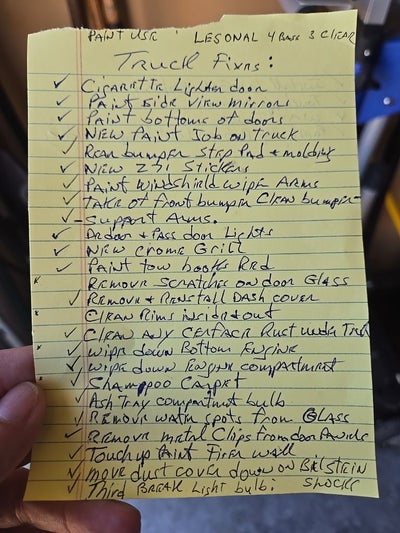 PAINT USE : LESONAL 4 Base 3 Clear
Truck Fixrs:
✓ Cigarette Lighter door
✓ Paint side view mirrors
✓ Paint bottoms of doors
✓ NEW Paint Job on Truck
✓ Rear bumper Step Pad + molding
✓ NEW Z71 Stickers
✓ Paint Windshield wipe Arms
✓ Take of front bumper Clean bumper
✓ - Support Arms.
✓ Dr door + Pass door Lights
✓ NEW crome Grill
✓ Paint tow hooks Red
x Remove Scratches on door Glass
✓ Remove & Reinstall Dash cover
x Clean Rims inside & out
✓ Clean any Cerface Rust under Truck
x ✓ Wipe down Bottom Engine
✓ Wipe down Engine compartment
x ✓ Shampoo Carpet
✓ Ash Tray compartment bulb
✓ Remove water spots from Glass
✓ Remove metal Clips from door Panels
✓ Touch up Paint Firer wall
✓ move dust cover down on Bilstein
✓ Third Break Light bulb: Shocks